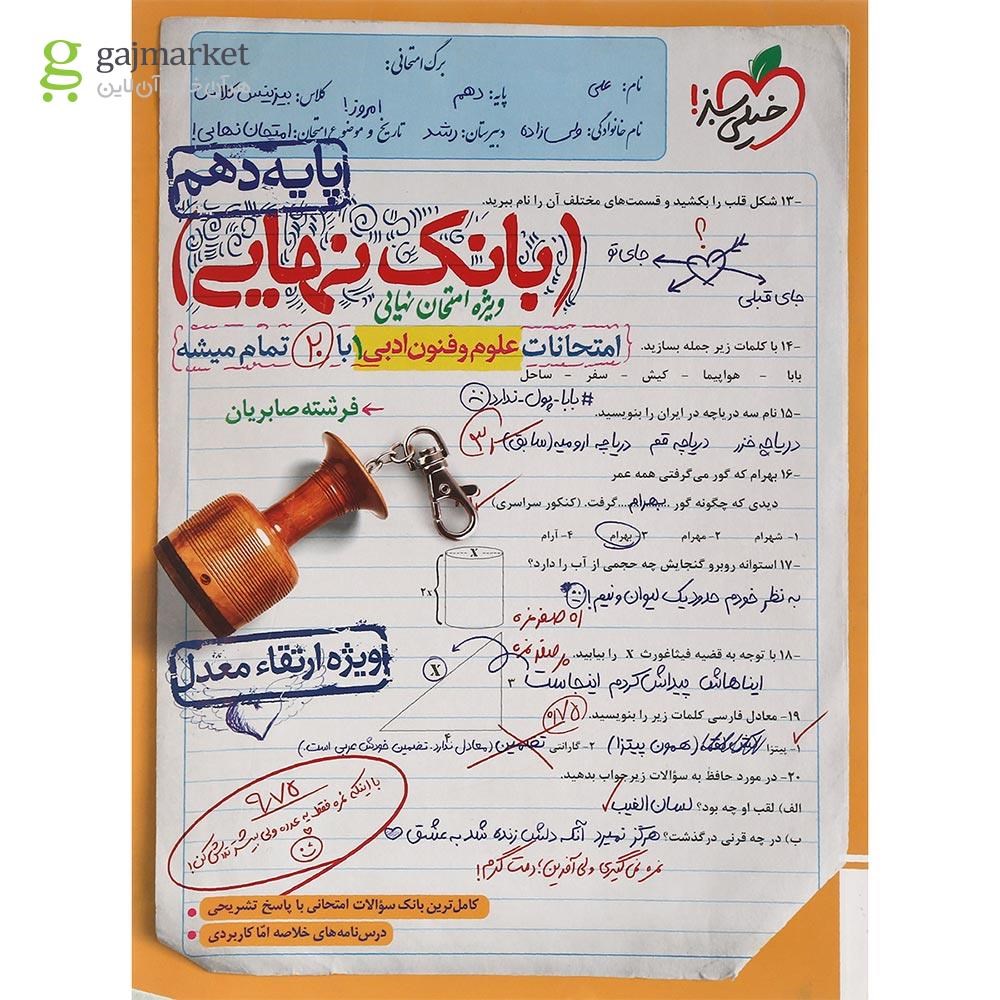 gajmarket
هر آن خرید آن لاین
برگ امتحانی:
نام: علی
پایه: دهم
کلاس: بیزینس کلاس
نام خانوادگی: ولی زاده
دبیرستان: رشد
امروز!
تاریخ و موضوع امتحان: امتحان نهایی!
خیلی سبز!
پایه دهم
۱۳- شکل قلب را بکشید و قسمت‌های مختلف آن را نام ببرید.
؟
جای تو
جای قبلی
(بانک نهایی)
ویژه امتحان نهایی
امتحانات علوم و فنون ادبی ۱ با ۲۰ تمام میشه
۱۴- با کلمات زیر جمله بسازید.
بابا - هواپیما - کیش - سفر - ساحل
#بابا-پول-ندارد
فرشته صابریان
۱۵- نام سه دریاچه در ایران را بنویسید.
دریاچه خزر دریاچه قم دریاچه ارومیه (سابق)
۱۶- بهرام که گور می‌گرفتی همه عمر
دیدی که چگونه گور ...بهرام... گرفت. (کنکور سراسری)
۱- شهرام ۲- مهرام ۳- بهرام ۴- آرام
۱۷- استوانه روبرو گنجایش چه حجمی از آب را دارد؟
X
2x
به نظر خودم حدود یک لیوان و نیم!
۱۸- با توجه به قضیه فیثاغورث X را بیابید.
X
۳
۴
ایناهاش پیداش کردم اینجاست
۱۹- معادل فارسی کلمات زیر را بنویسید.
۰/۷۵
۱- پیتزا (همون پیتزا) ۲- گارانتی تضمین (معادل ندارد. تضمین خودش عربی است.)
۲۰- در مورد حافظ به سؤالات زیر جواب بدهید.
الف) لقب او چه بود؟ لسان الغیب
ب) در چه قرنی درگذشت؟ هرگز نمیرد آنکه دلش زنده شد به عشق
نمره نمی‌گیری ولی آفرین؛ دمت گرم!
ویژه ارتقاء معدل
۹/۷۵
با اینکه نمره فقط یه عدده ولی بیشتر تلاش کن!
کامل‌ترین بانک سؤالات امتحانی با پاسخ تشریحی
درس‌نامه‌های خلاصه امّا کاربردی